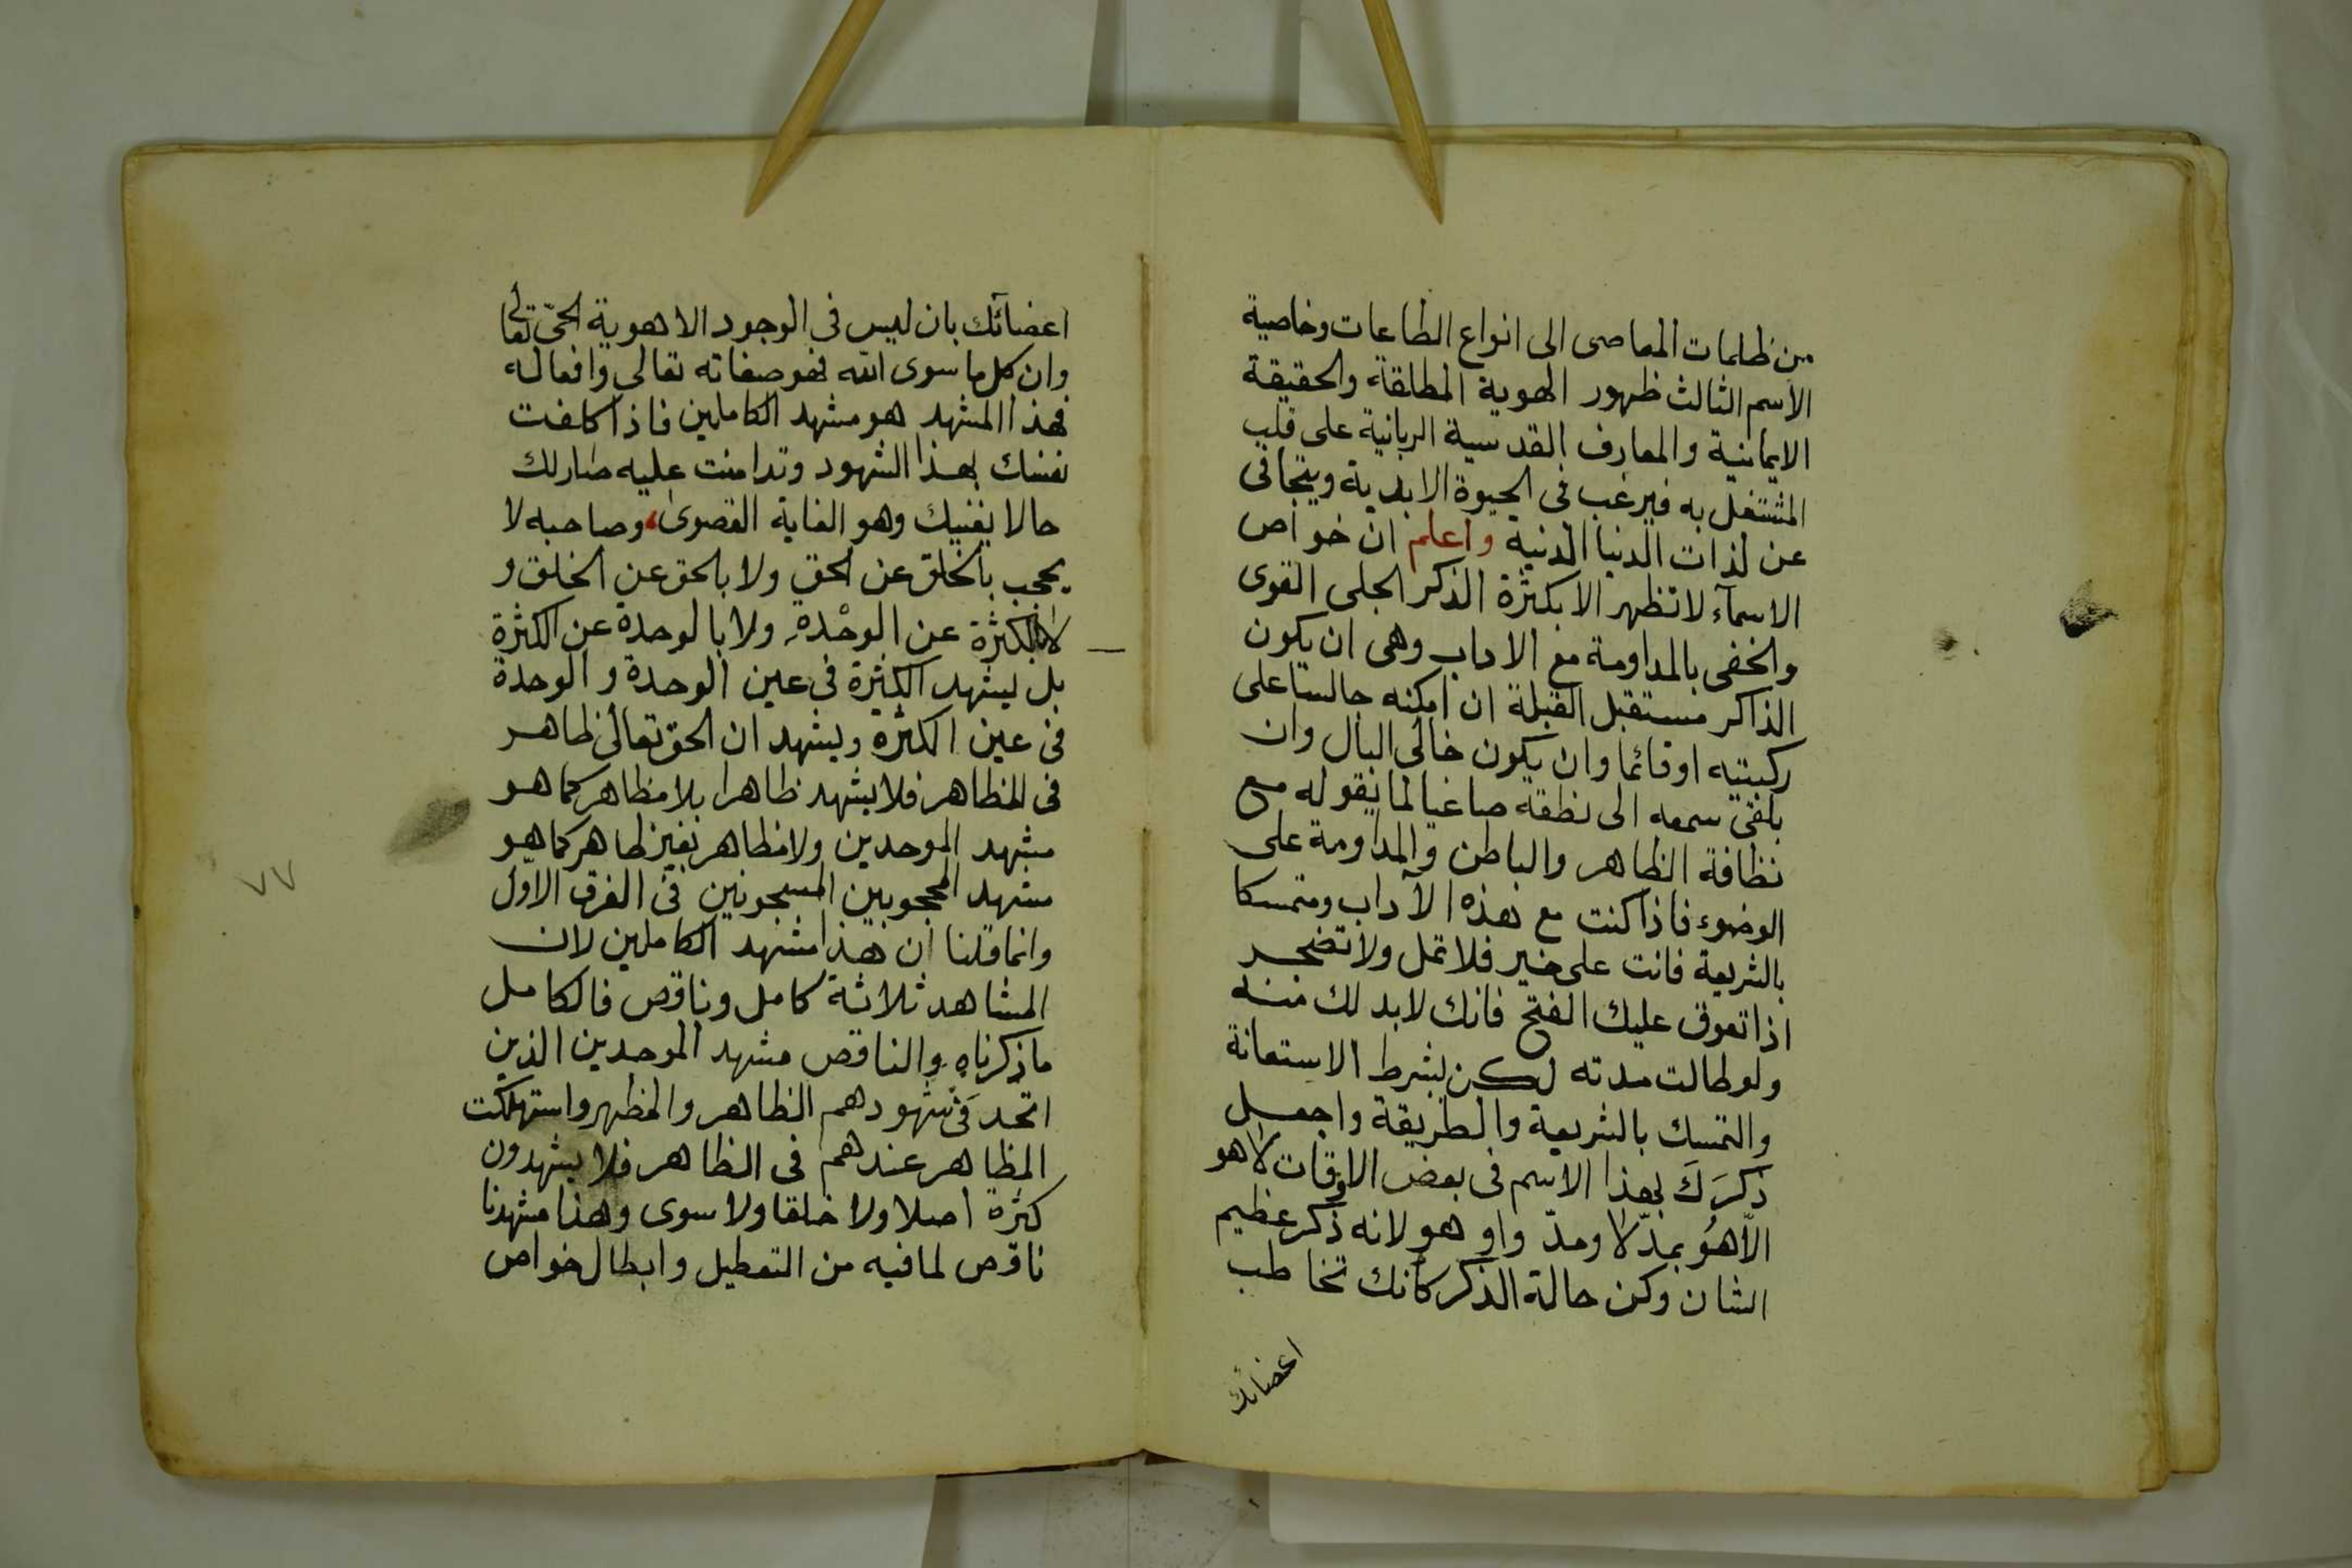 من ظلمات المعاصى الى انواع الطاعات وخاصية
الاسم الثالث ظهور الهوية المطلقة والحقيقة
الايمانية والمعارف القدسية الربانية على قلب
المشتغل به فيرغب فى الحيوة الابدية ويتجافى
عن لذات الدنيا الدنية واعلم ان خواص
الاسمآء لا تظهر الا بكثرة الذكر الجلى القوى
والخفى بالمداومة مع الاداب وهى ان يكون
الذاكر مستقبل القبلة ان امكنه جالسا على
ركبتيه او قائما وان يكون خالى البال وان
يلقى سمعه الى نطقه صاغيا لما يقوله مع
نظافة الظاهر والباطن والمداومة على
الوضوء فاذا كنت مع هذه الآداب ومتمسكا
بالشريعة فانت على خير فلا تمل ولا تضجر
اذا تعوق عليك الفتح فانك لابد لك منه
ولو طالت مدته لكن بشرط الاستعانة
والتمسك بالشريعة والطريقة واجعل
ذكرَكَ بهذا الاسم فى بعض الاوقات لا هو
الّا هُو بمدّ لا ومدّ واو هو لانه ذكر عظيم
الشان وكن حالة الذكر كأنك تخاطب
اعضائك
اعضآئك بان ليس فى الوجود الا هوية الحق تعالى
وان كل ما سوى الله فهو صفاته تعالى وافعاله
فهذا المشهد هو مشهد الكاملين فاذا كلفت
نفسك بهذا الشهود وتدامنت عليه صار لك
حالا يفنيك وهو الغاية القصوى، وصاحبه لا
يحجب بالخلق عن الحق ولا بالحق عن الخلق و
لا بالكثرة عن الوحْدة ولا بالوحدة عن الكثرة
بل يشهد الكثرة فى عين الوحدة و الوحدة
فى عين الكثرة ويشهد ان الحق تعالى ظاهر
فى المظاهر فلا يشهد ظاهرا بلا مظاهر كما هو
مشهد الموحدين ولا مظاهر بغير ظاهر كما هو
مشهد المحجوبين المسجونين فى الفرق الاوّل
وانما قلنا ان هذا مشهد الكاملين لان
المشاهد ثلاثة كامل وناقص فالكامل
ما ذكرناه والناقص مشهد الموحدين الذين
اتحد فى شهودهم الظاهر والمظهر واستهلكت
المظاهر عندهم فى الظاهر فلا يشهدون
كثرة اصلا ولا خلقا ولا سوى وهذا مشهدنا
ناقص لما فيه من التعطيل وابطال خواص
٧٧